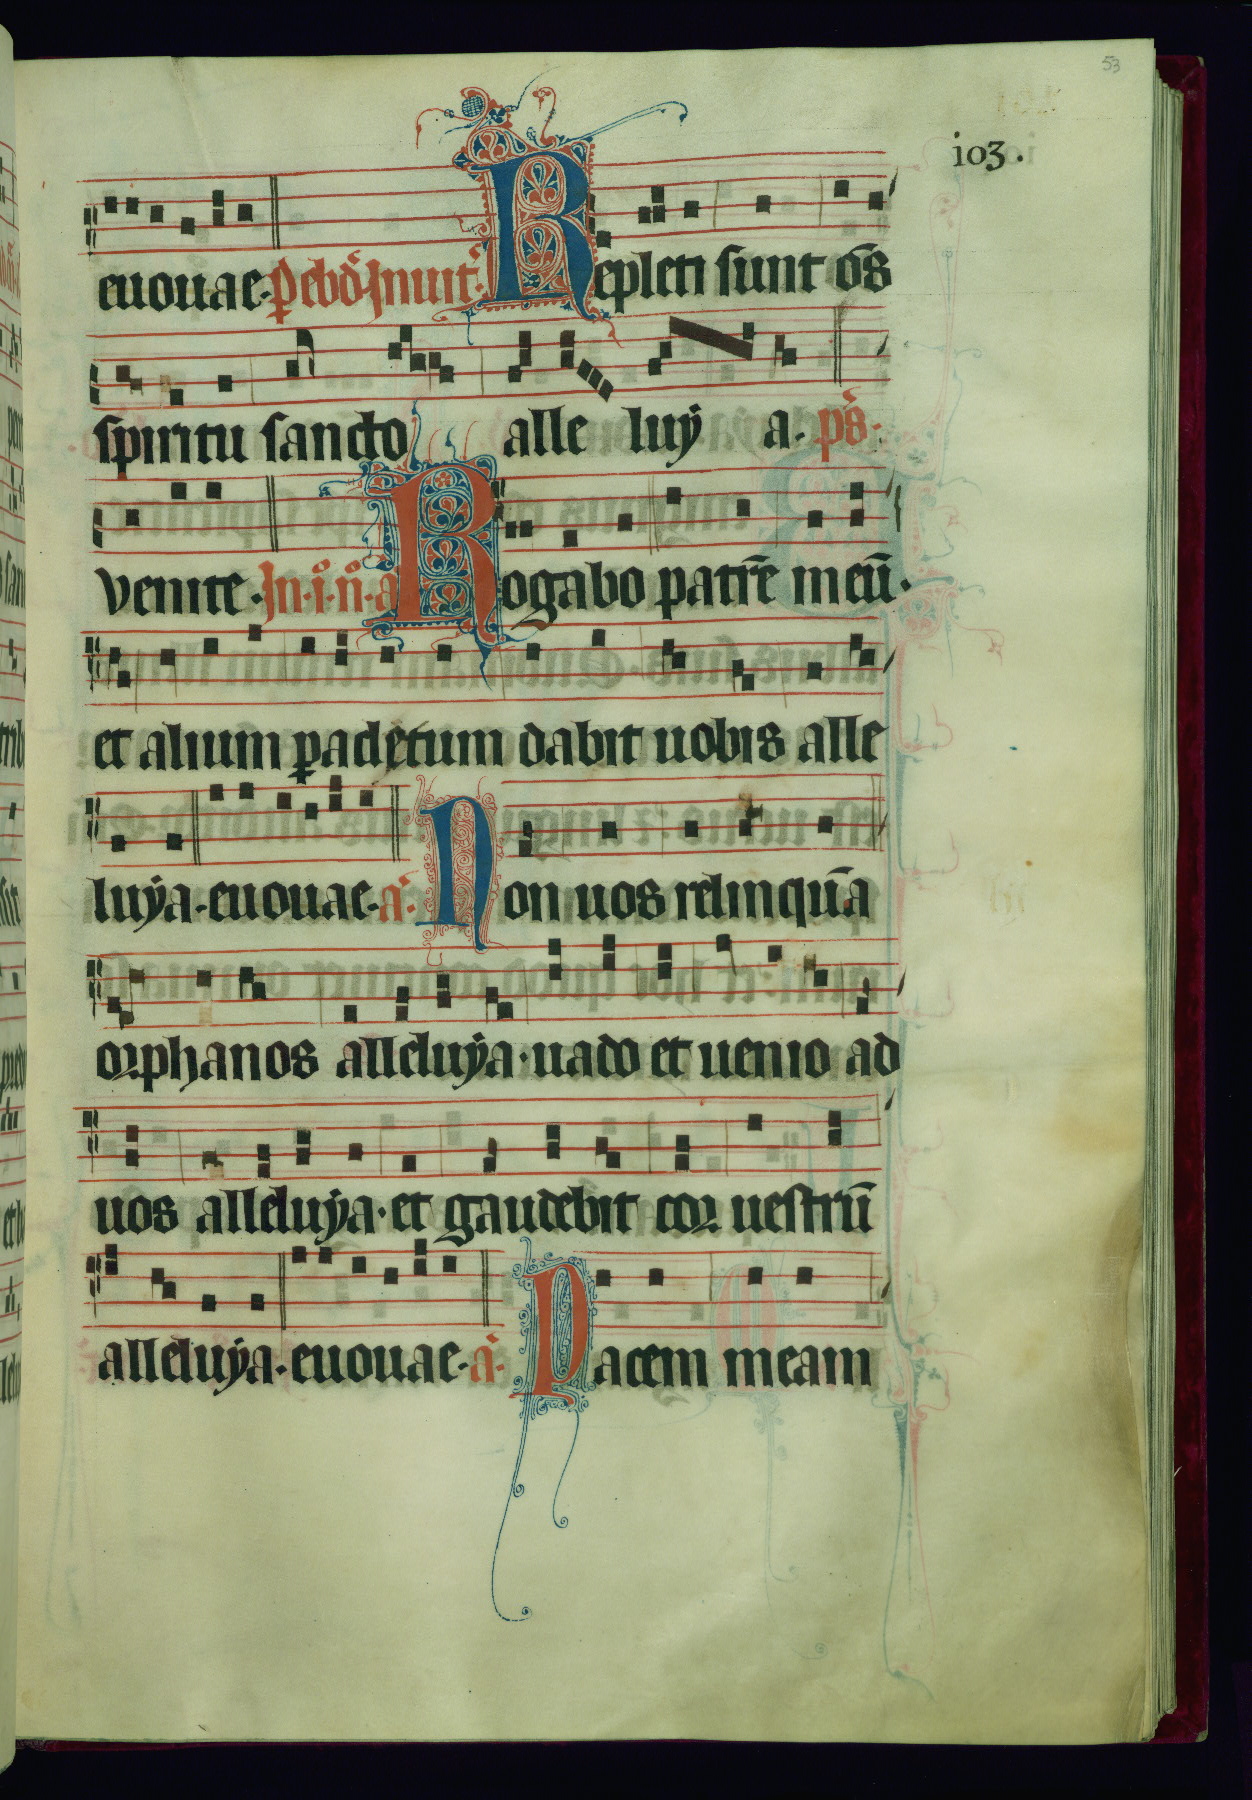 53
103.
euouae. p̲ ebd̄. Inuit̄. Repleti sunt om̄s
spiritu sancto alle luÿ a. ps̄.
venite. In. i. n̄. a Rogabo patrē meū.
et alium paclętum dabit uobis alle
luÿa. euouae. a. Non uos relinquā
orphanos alleluÿa. uado et uenio ad
uos alleluÿa. et gaudebit cor uestrū
alleluÿa. euouae. a. Pacem meam